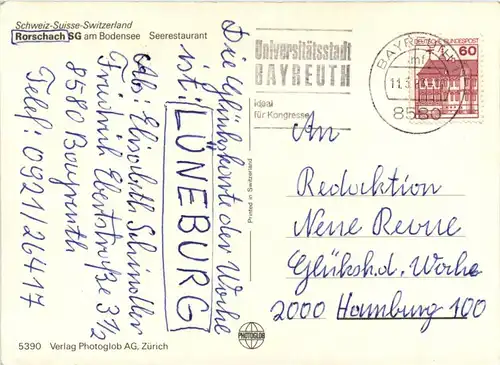 Schweiz-Suisse-Switzerland
Rorschach SG am Bodensee Seerestaurant
Die Glückskarte der Woche
ist: LÜNEBURG
Abs: Elisabeth
Friedrich Ebertstraße 3 1/2
8580 Bayreuth
Telef: 0921/26417
5390 Verlag Photoglob AG, Zürich
Printed in Switzerland
PHOTOGLOB
Universitätsstadt
BAYREUTH
ideal
für Kongresse
BAYREUTH
8580
DEUTSCHE BUNDESPOST
60
An
Redaktion
Neue Revue
Glücksk.d. Woche
2000 Hamburg 100